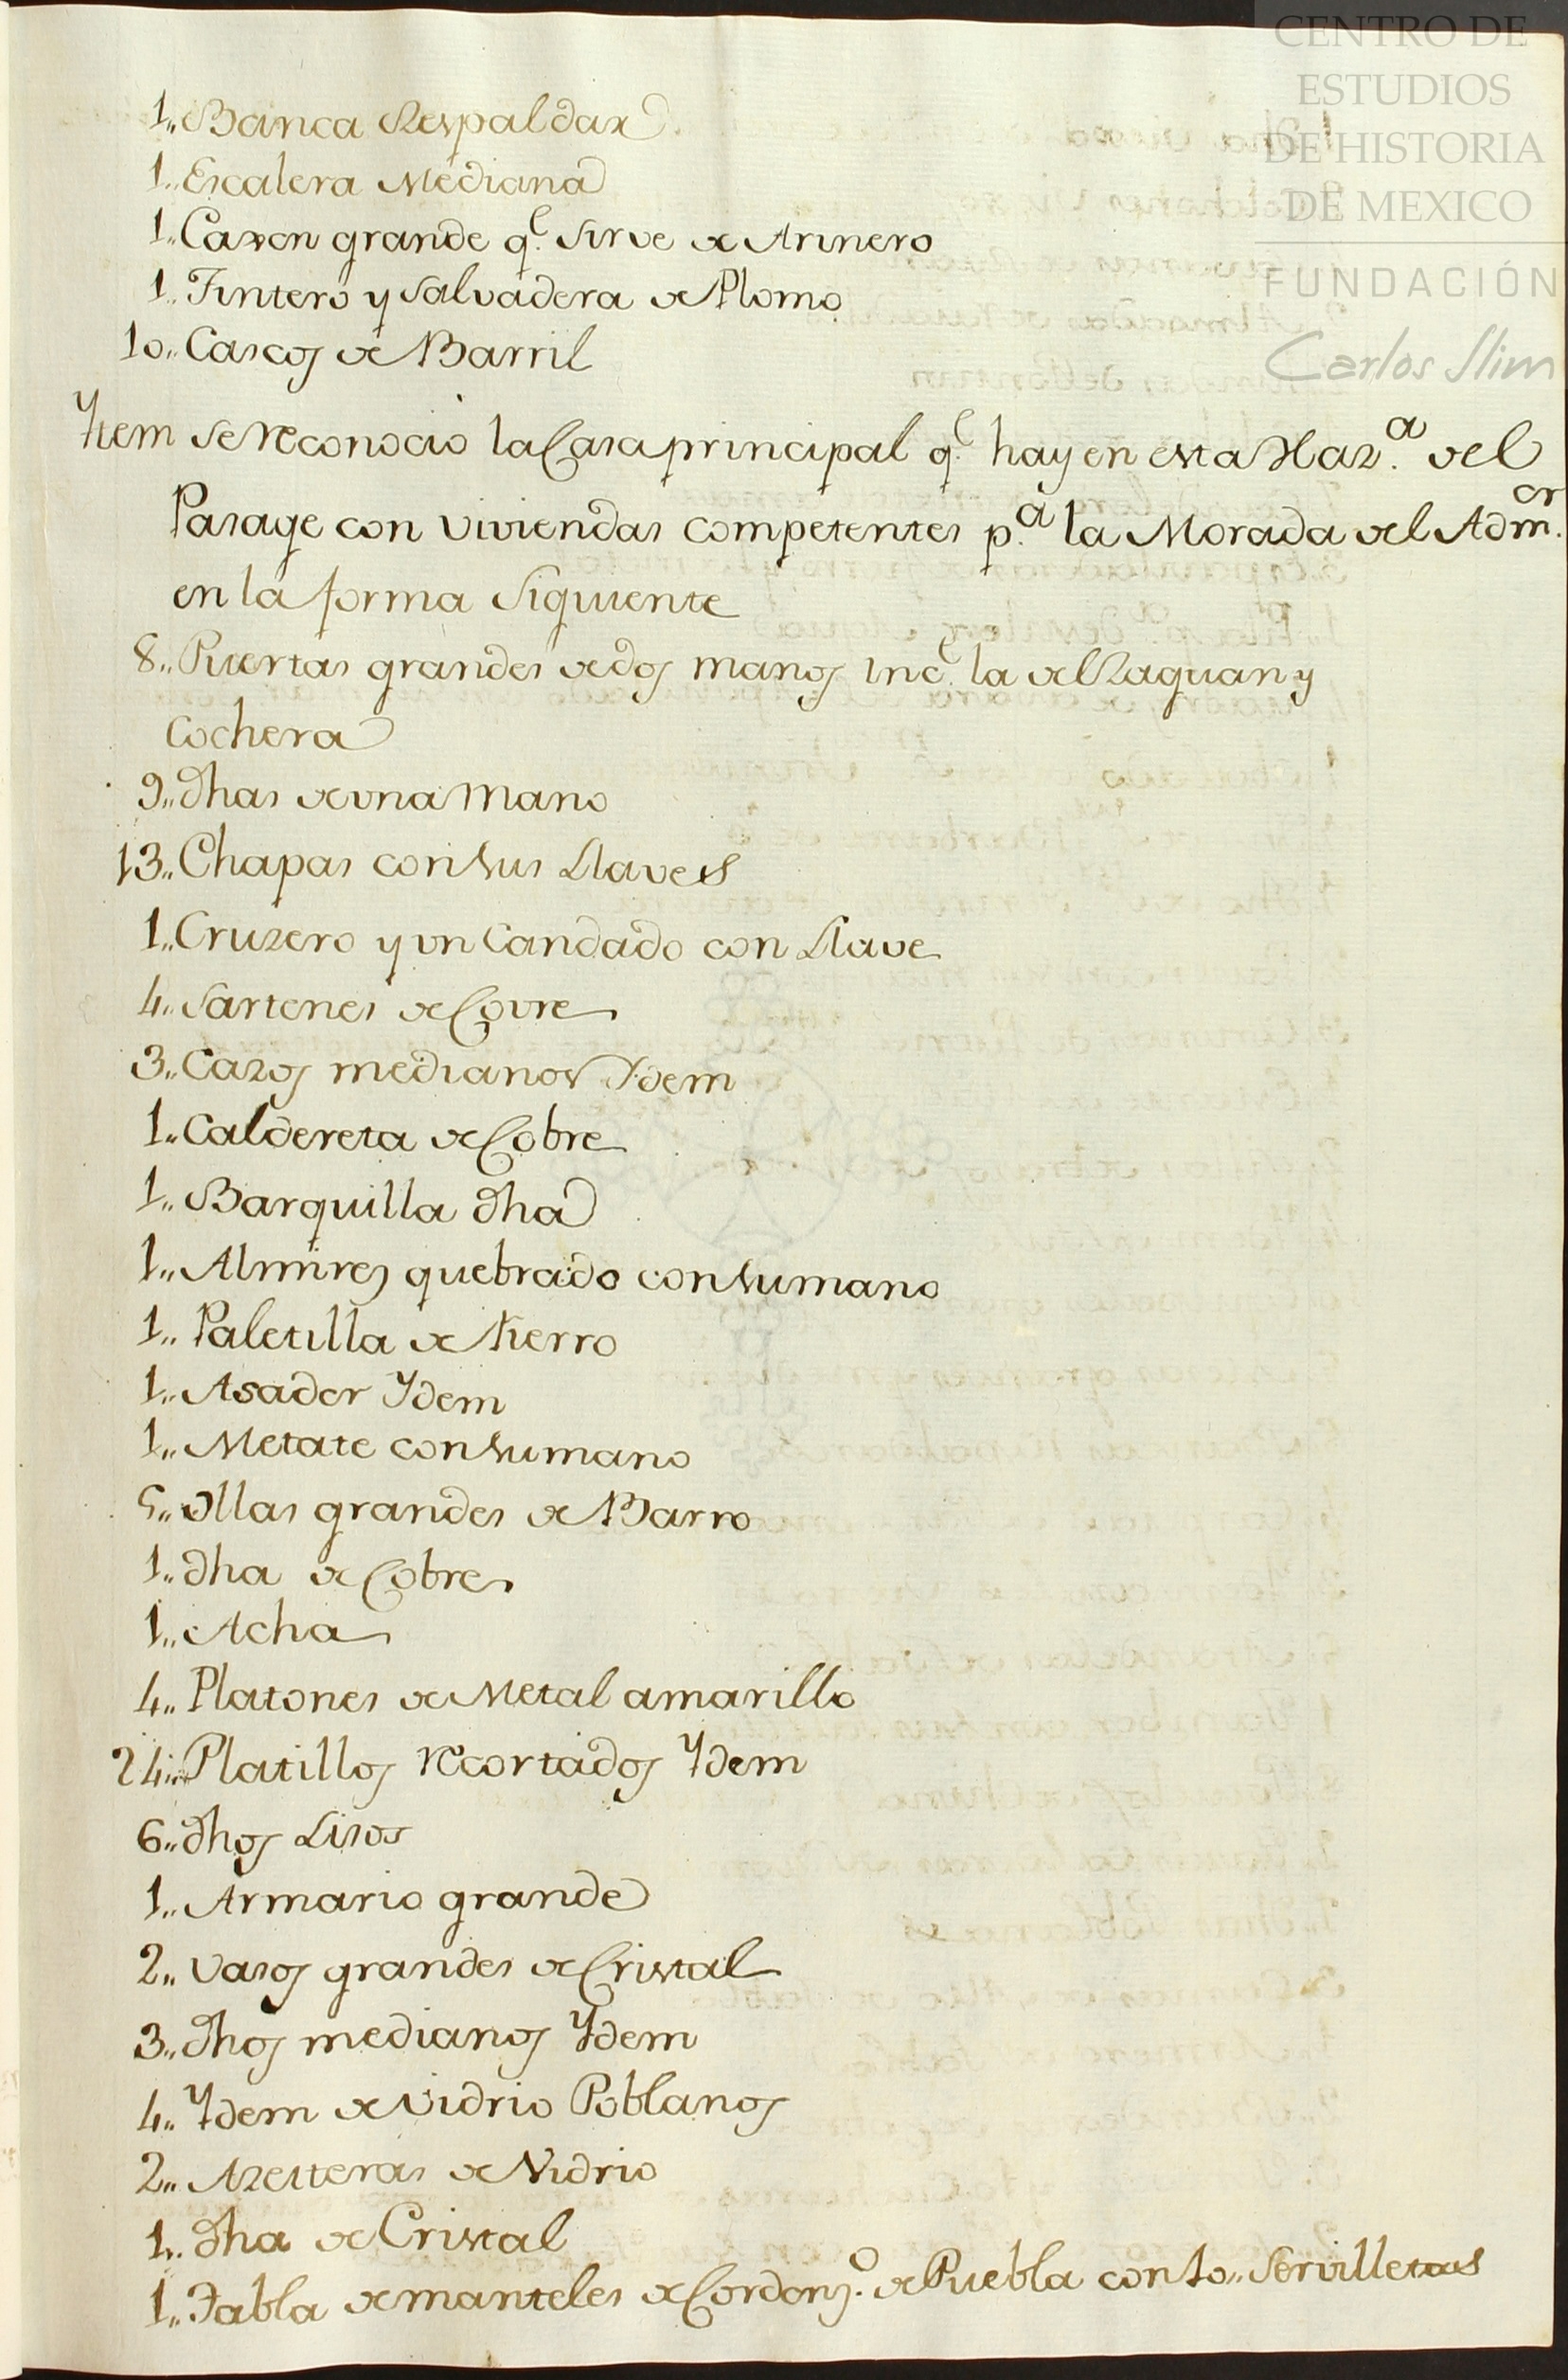 CENTRO DE
ESTUDIOS
DE HISTORIA
DE MEXICO
FUNDACIÓN
Carlos Slim
1,, Banca Respaldar
1,, Escalera Mediana
1,, Caxon grande q.e sirve de Arinero
1,, Tintero y salvadera de Plomo
10,, Cascos de Barril
Ytem se reconocio la Casa principal q.e hay en esta Haz.a del
Pasage con viviendas competentes p.a la Morada del Adm.or
en la forma siguiente
8,, Puertas grandes de dos manos inc.e la del Zaguan y
Cochera
9,, dhas de una Mano
13,, Chapas con sus Llaves
1,, Cruzero y un Candado con Llave
4,, Sartenes de Covre
3,, Cazos medianos Ydem
1,, Caldereta de Cobre
1,, Barquilla dha
1,, Almirez quebrado con su mano
1,, Paletilla de fierro
1,, Asador Ydem
1,, Metate con su mano
5,, Ollas grandes de Barro
1,, dha de Cobre
1,, Acha
4,, Platones de Metal amarillo
24,, Platillos recortados Ydem
6,, dhos Lisos
1,, Armario grande
2,, Vasos grandes de Cristal
3,, dhos medianos Ydem
4,, Ydem de Vidrio Poblanos
2,, Azeiteras de Vidrio
1,, dha de Cristal
1,, Tabla de manteles de Cordonz.o de Puebla con 10,, Servilletas